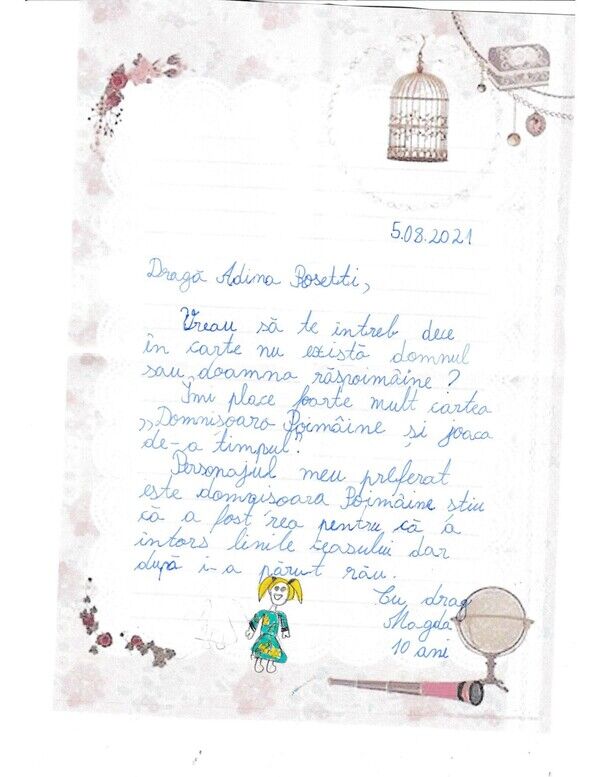 5.08.2021
Dragă Adina Rosetti,
Vreau să te întreb dece
în carte nu există domnul
sau doamna răspoimâine?
Îmi place foarte mult cartea
„Domnisoara Poimâine și joaca
de-a timpul."
Personajul meu preferat
este domnisoara Poimâine stiu
că a fost rea pentru că a
întors linile ceasului dar
după i-a părut rău.
Cu drag
Magda
10 ani